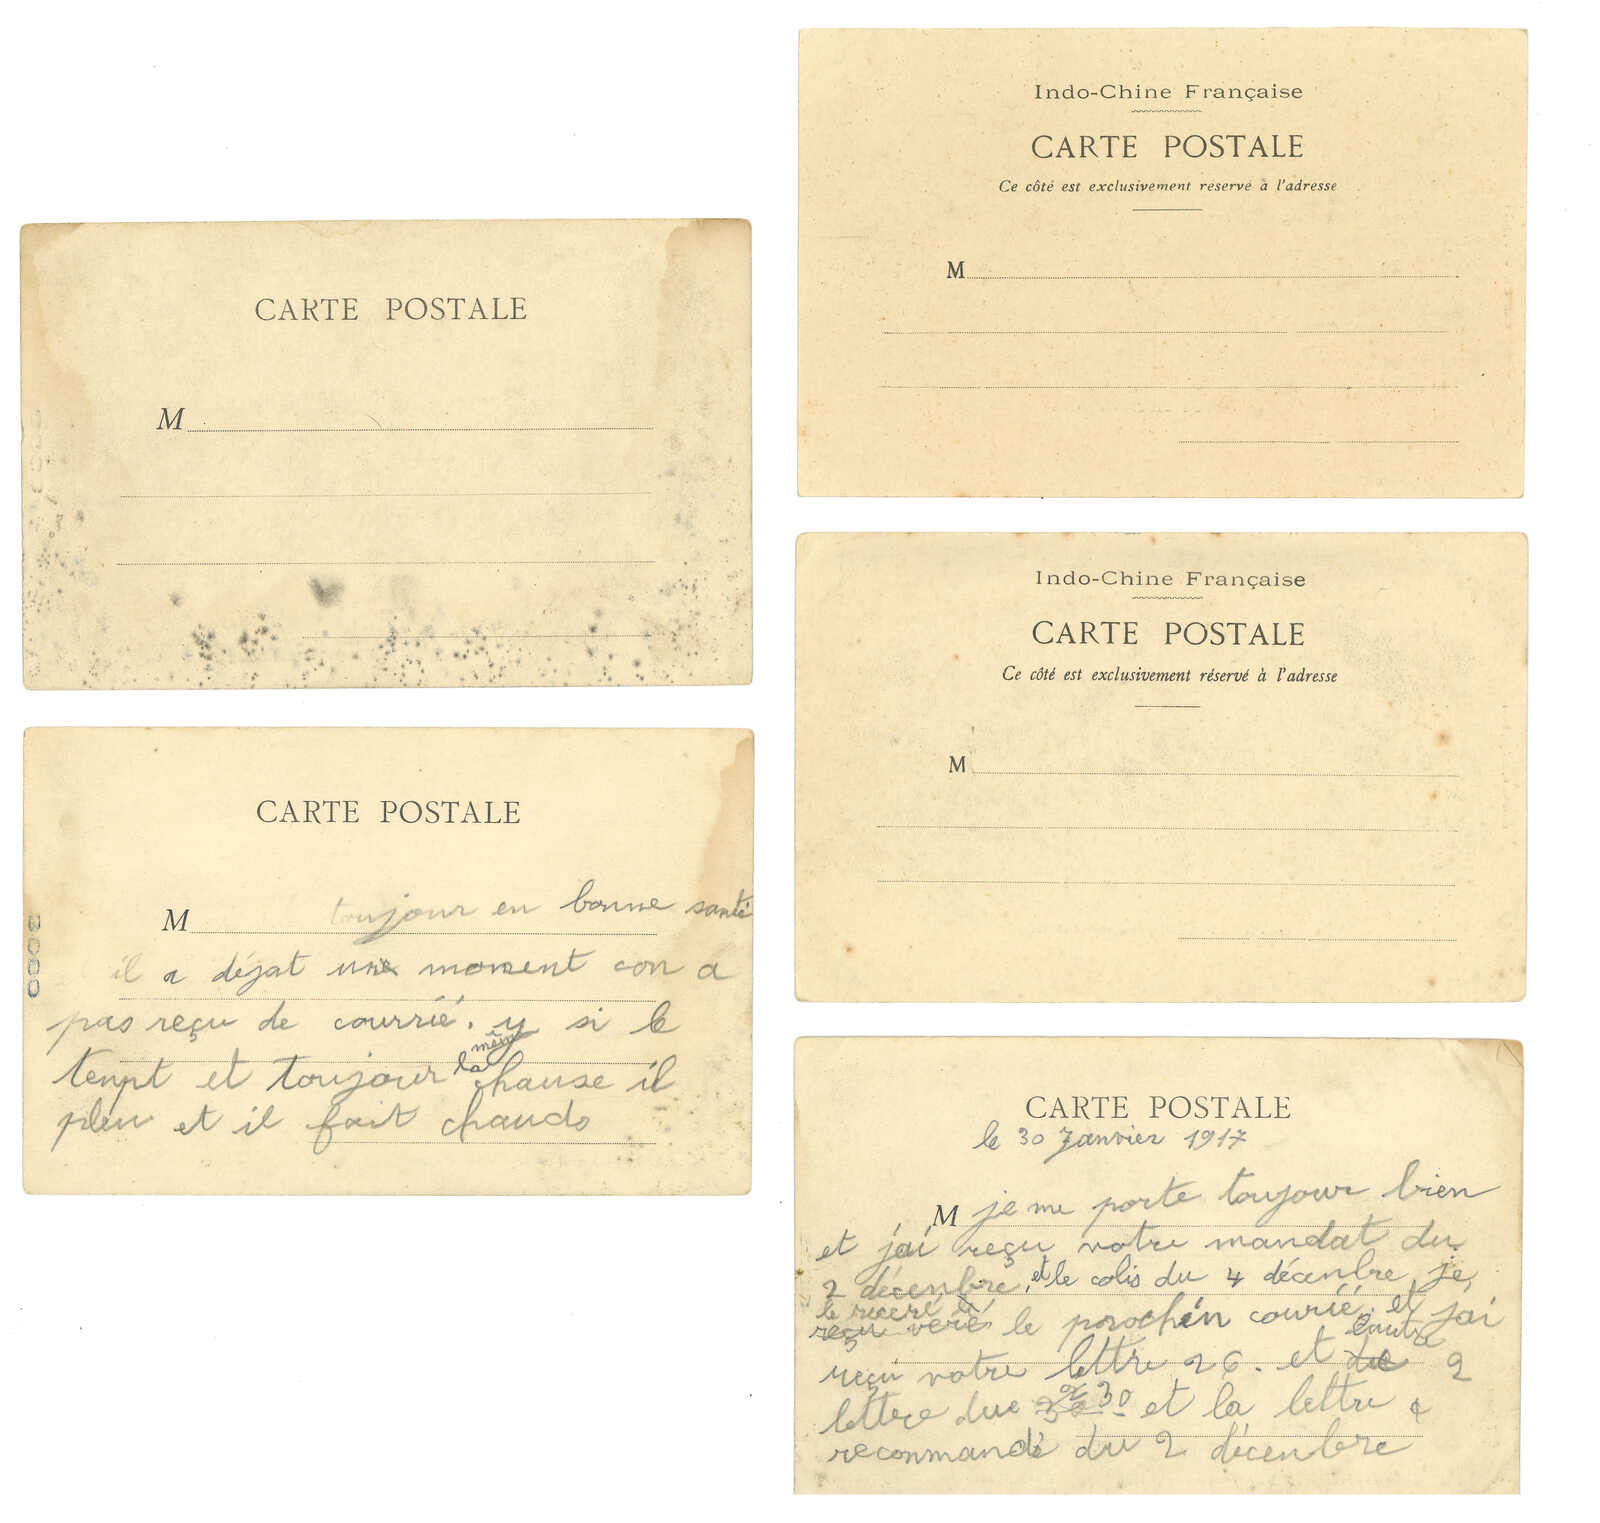 CARTE POSTALE
M
CARTE POSTALE
M toujour en bonne santé
il a déjat une moment con a
pas reçu de courrié. y si le
tenpt et toujour la mêm chause il
pleu et il fait chaudo
Indo-Chine Française
CARTE POSTALE
Ce côté est exclusivement réservé à l'adresse
M
Indo-Chine Française
CARTE POSTALE
Ce côté est exclusivement réservé à l'adresse
M
CARTE POSTALE
le 30 Janvier 1917
M je me porte toujour bien
et j'ai reçu votre mandat du
2 décenbre, et le colis du 4 décenbre je
le receré
reçu veré le prochin courié. et j'ai
reçu votre lettre 26. et l'autre 2
lettre due 30 et la lettre
reconmandé du 2 décenbre